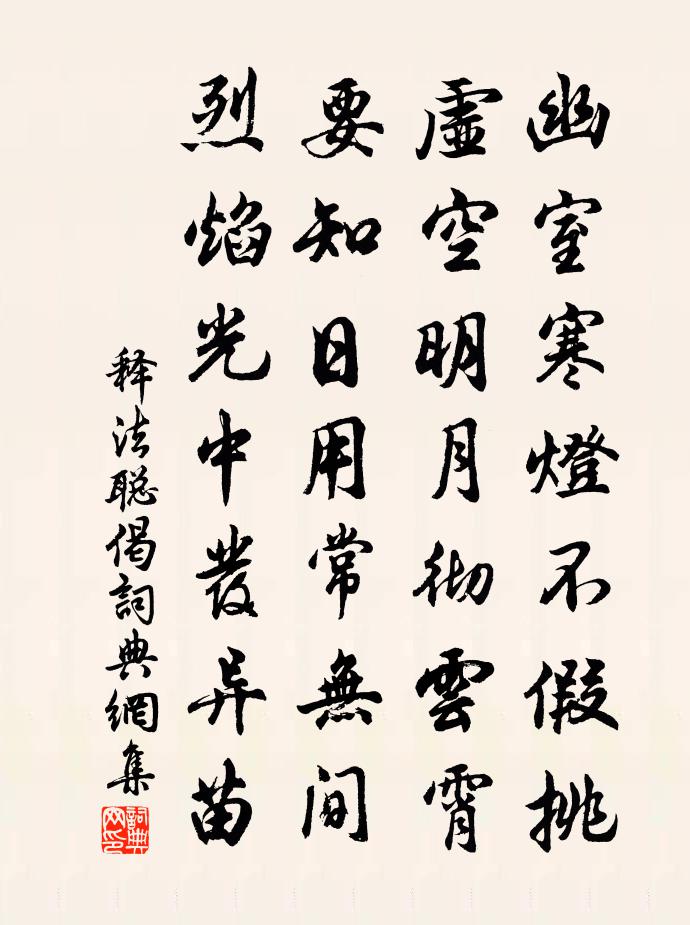 幽室寒燈不假挑
虛空明月彻雲霄
要知日用常無间
烈焰光中發异苗
释法聪偈詞典網集
詞典网印